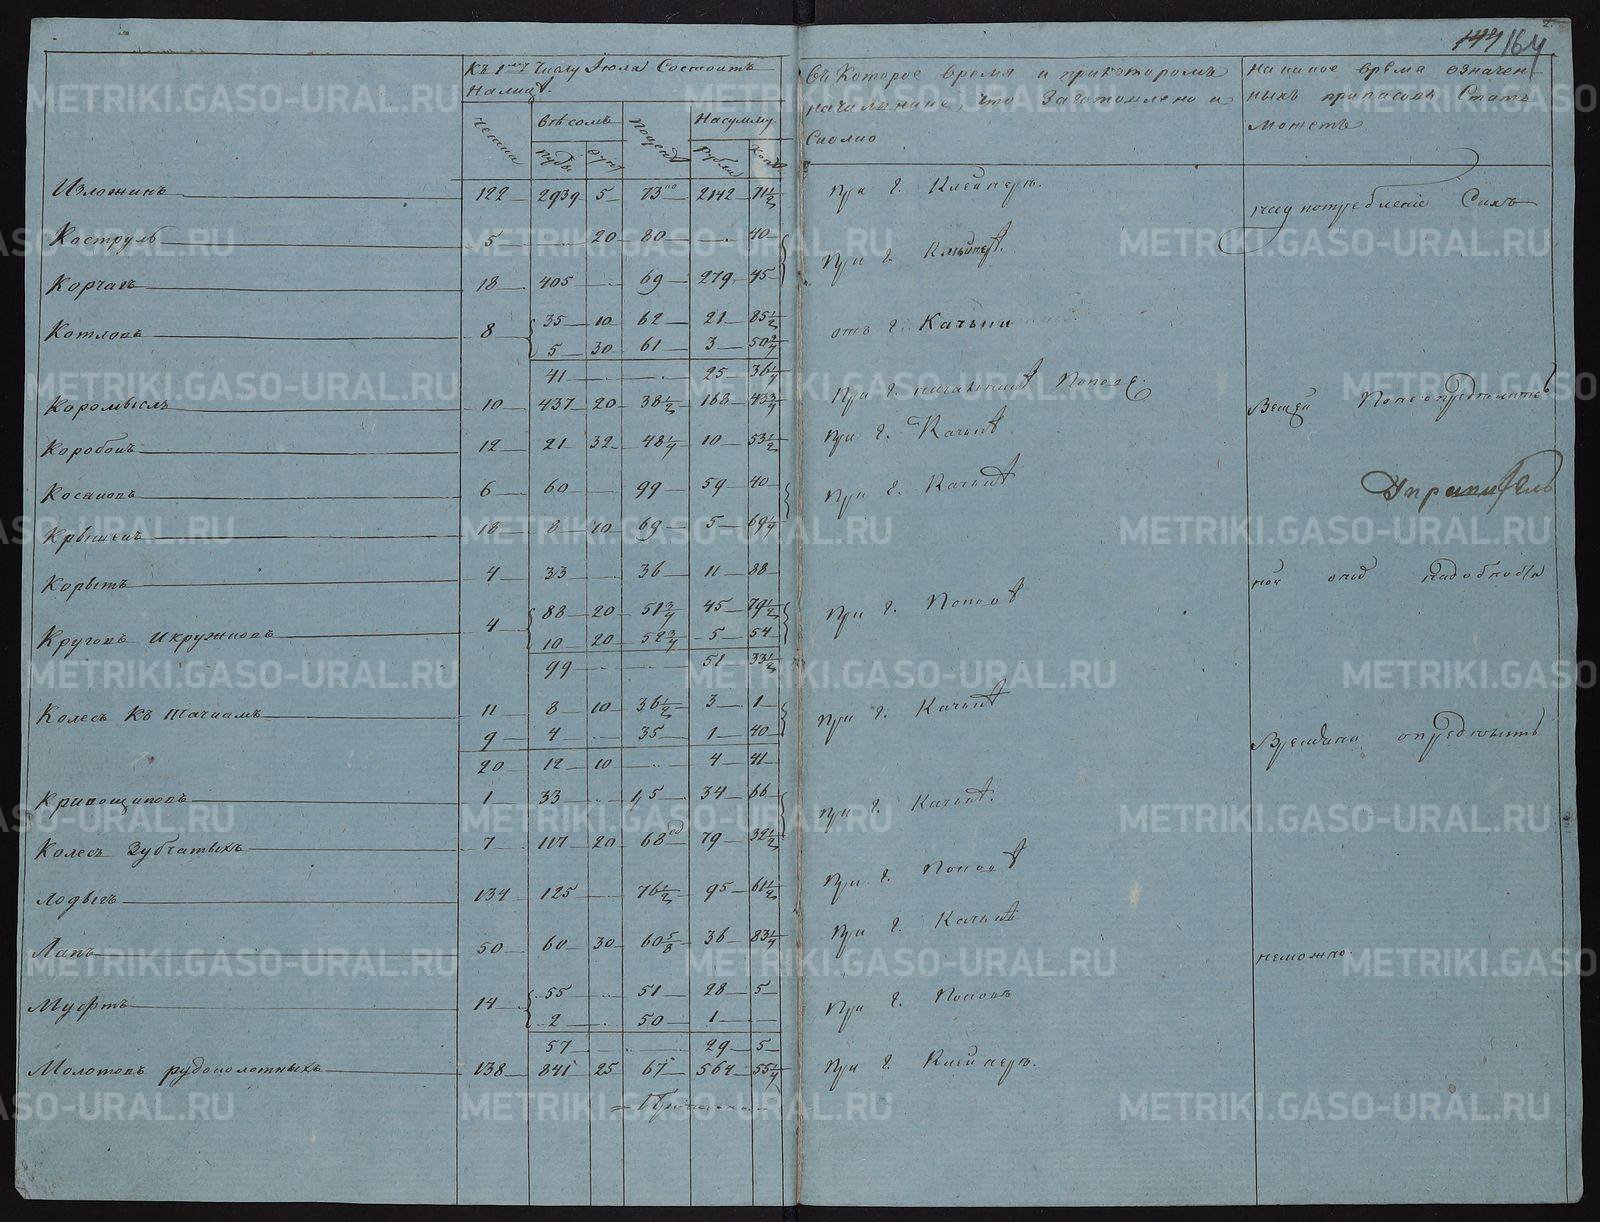 144 164
Къ 1му Числу Июля Состоитъ
Налицо.
Въ Которое время и прикоторомъ
начальнике, что Заготовлено и
Сколко
На какое время означен-
ныхъ припасовъ Стать
Можетъ
числа
Весомъ
пуды
фун
поцене
Насумму
рубли
коп
Изложинъ 122 2939 5 73 2142 71½ при г. Клейнере.
над потребление Силъ
Каструль 5 20 80 40 При г. Клейнер
Корчагъ 18 405 69 279 45
Котловъ 8 35 10 62 21 85½ отъ г. Качки
5 30 61 3 50¾
41 25 36¼
Коромыслъ 10 437 20 38½ 168 43¾ При г. начальнике Попове.
Вещей
Коробокъ 12 21 32 48¼ 10 53½ при г. Качке
Косяковъ 6 60 99 59 40 При г. Качке
Управитель
Крышекъ 18 8 10 69 5 69¼
Корытъ 4 33 36 11 88
ной надобности
Круговъ Икружковъ 4 88 20 51¾ 45 79½ при г. Попове
10 20 52¾ 5 54
99 51 33½
Колесъ Къ тачкамъ 11 8 10 36½ 3 1 При г. Качке
9 4 35 1 40
Времяни определить
20 12 10 4 41
Кривошиповъ 1 33 1,5 34 66 при г. Качке.
Колесъ Зубчатыхъ 7 117 20 68 79 32½
Лодыгъ 134 125 76½ 95 61½ При г. Попове
Лапъ 50 60 30 60⅝ 36 83¼ При г. Качке
неможно.
Муфтъ 14 55 51 28 5 При г. Попове
2 50 1
57 29 5
Молотовъ рудоколотныхъ 138 841 25 67 564 55¼ При г. Клейнере.
METRIKI.GASO-URAL.RU